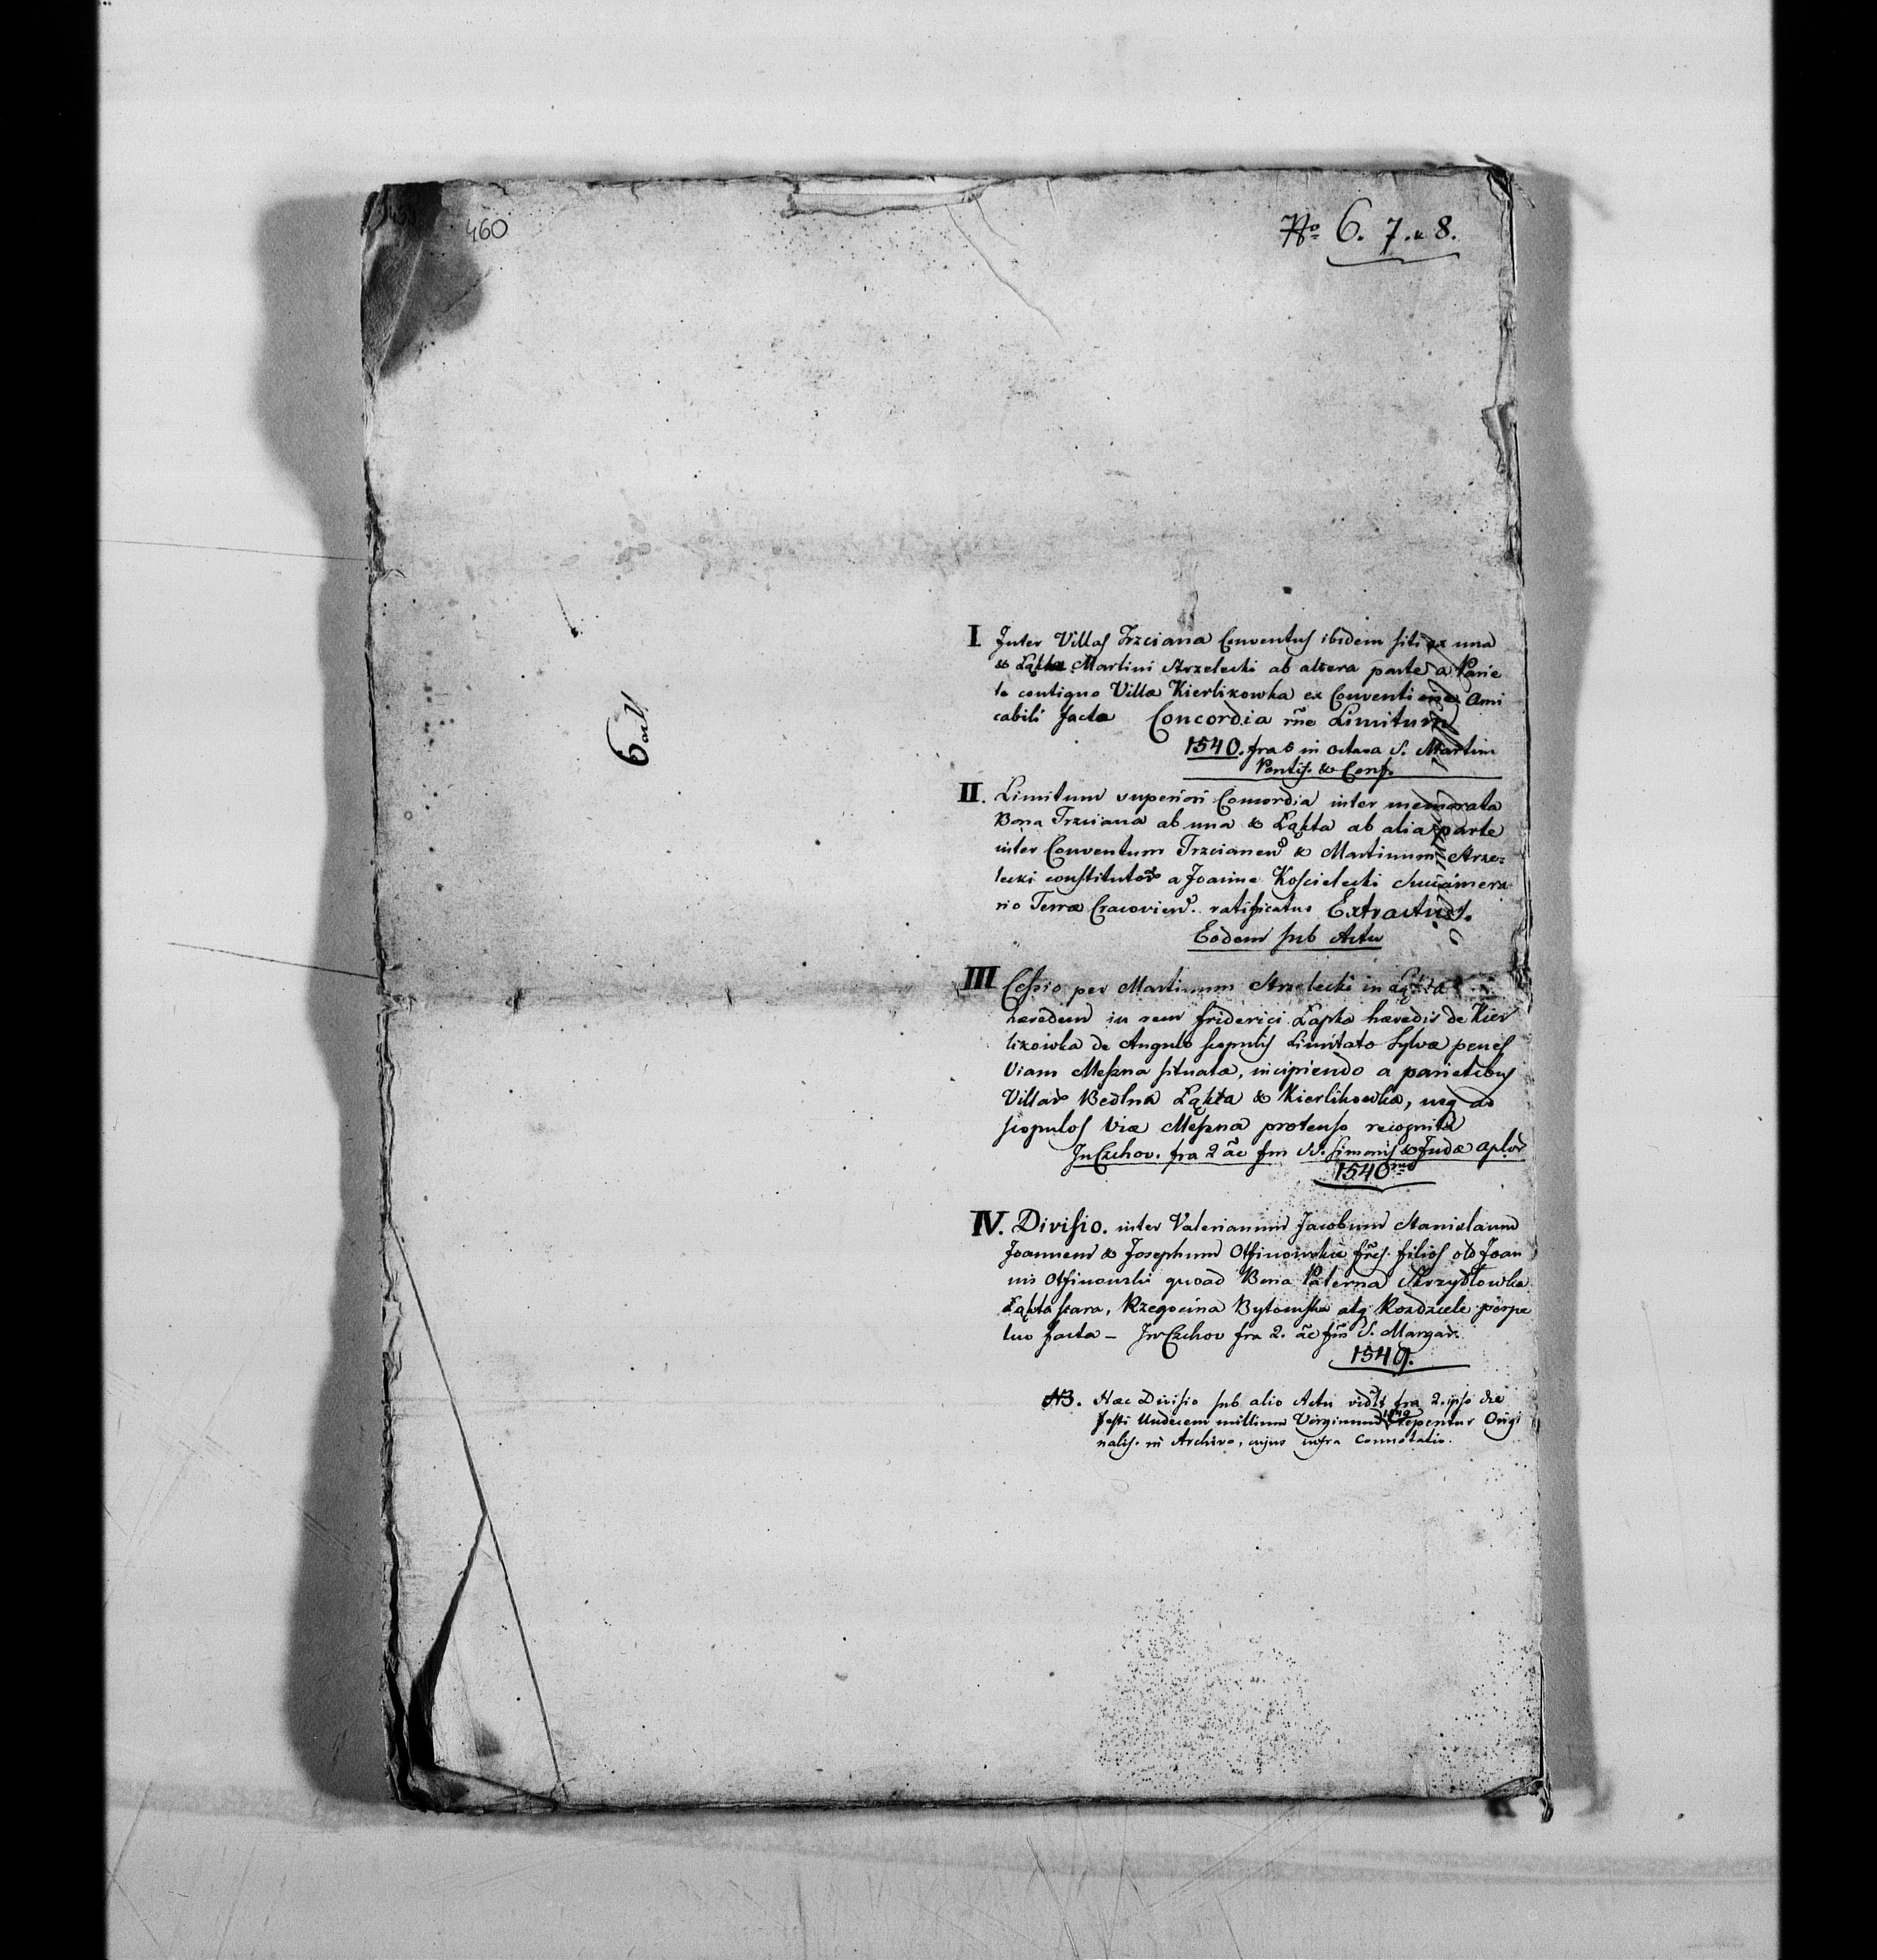 460
No 6. 7. & 8.
6 all
I Inter Villas Trzciana Conventus ibidem siti ex una
& Łąkta Martini Strzelecki ab altera parte a Parie
te contiguo Villæ Kierlikowka ex Conventione Ami
cabili facta Concordia rne Limitum
1540. fra 6 in octava S. Martini
Pontif. & Conf.
II. Limitum superiori Concordia inter memorata
Bona Trzciana ab una & Łąkta ab alia parte
inter Conventum Trzcianen & Martinum Strze=
lecki constitutor a Joanne Kościelecki Succamera
rio Terræ Cracovien. ratificatus Extractus.
Eodem sub Actu
III Cessio per Martinum Strzelecki in Łąkta
hæredem in rem friderici Łapka hæredis de Kier
likowka de Angulo scopulis Limitato Sylvæ penes
Viam Meszna situatæ, incipiendo a parietibus
Villar Bedlna Łąkta & Kierlikowka, usq ad
scopulos Viæ Meszna protenso recognita
In Czchov. fra 2 ãc fm SS. Simonis & Judæ Aplor
1540mo
IV. Divisio. inter Valerianum Jacobum Stanislaum
Joannem & Josephum Otfinowskie frēs. filios olo Joan
nis Otfinowski quoad Bona Paterna Skrzydłowka
Łąkta stara, Rzegocina Bytomska atq Rozdziele perpe
tuo facta – In Czchov fra 2. ãc fm S. Margar.
1549.
NB. Hæc Divisio sub alio Actu vidlt fra 2. ipso die
festi Undecem millium Virginum 1549 reperitur Origi
nalis. in Archivo, cujus infra Connotatio.